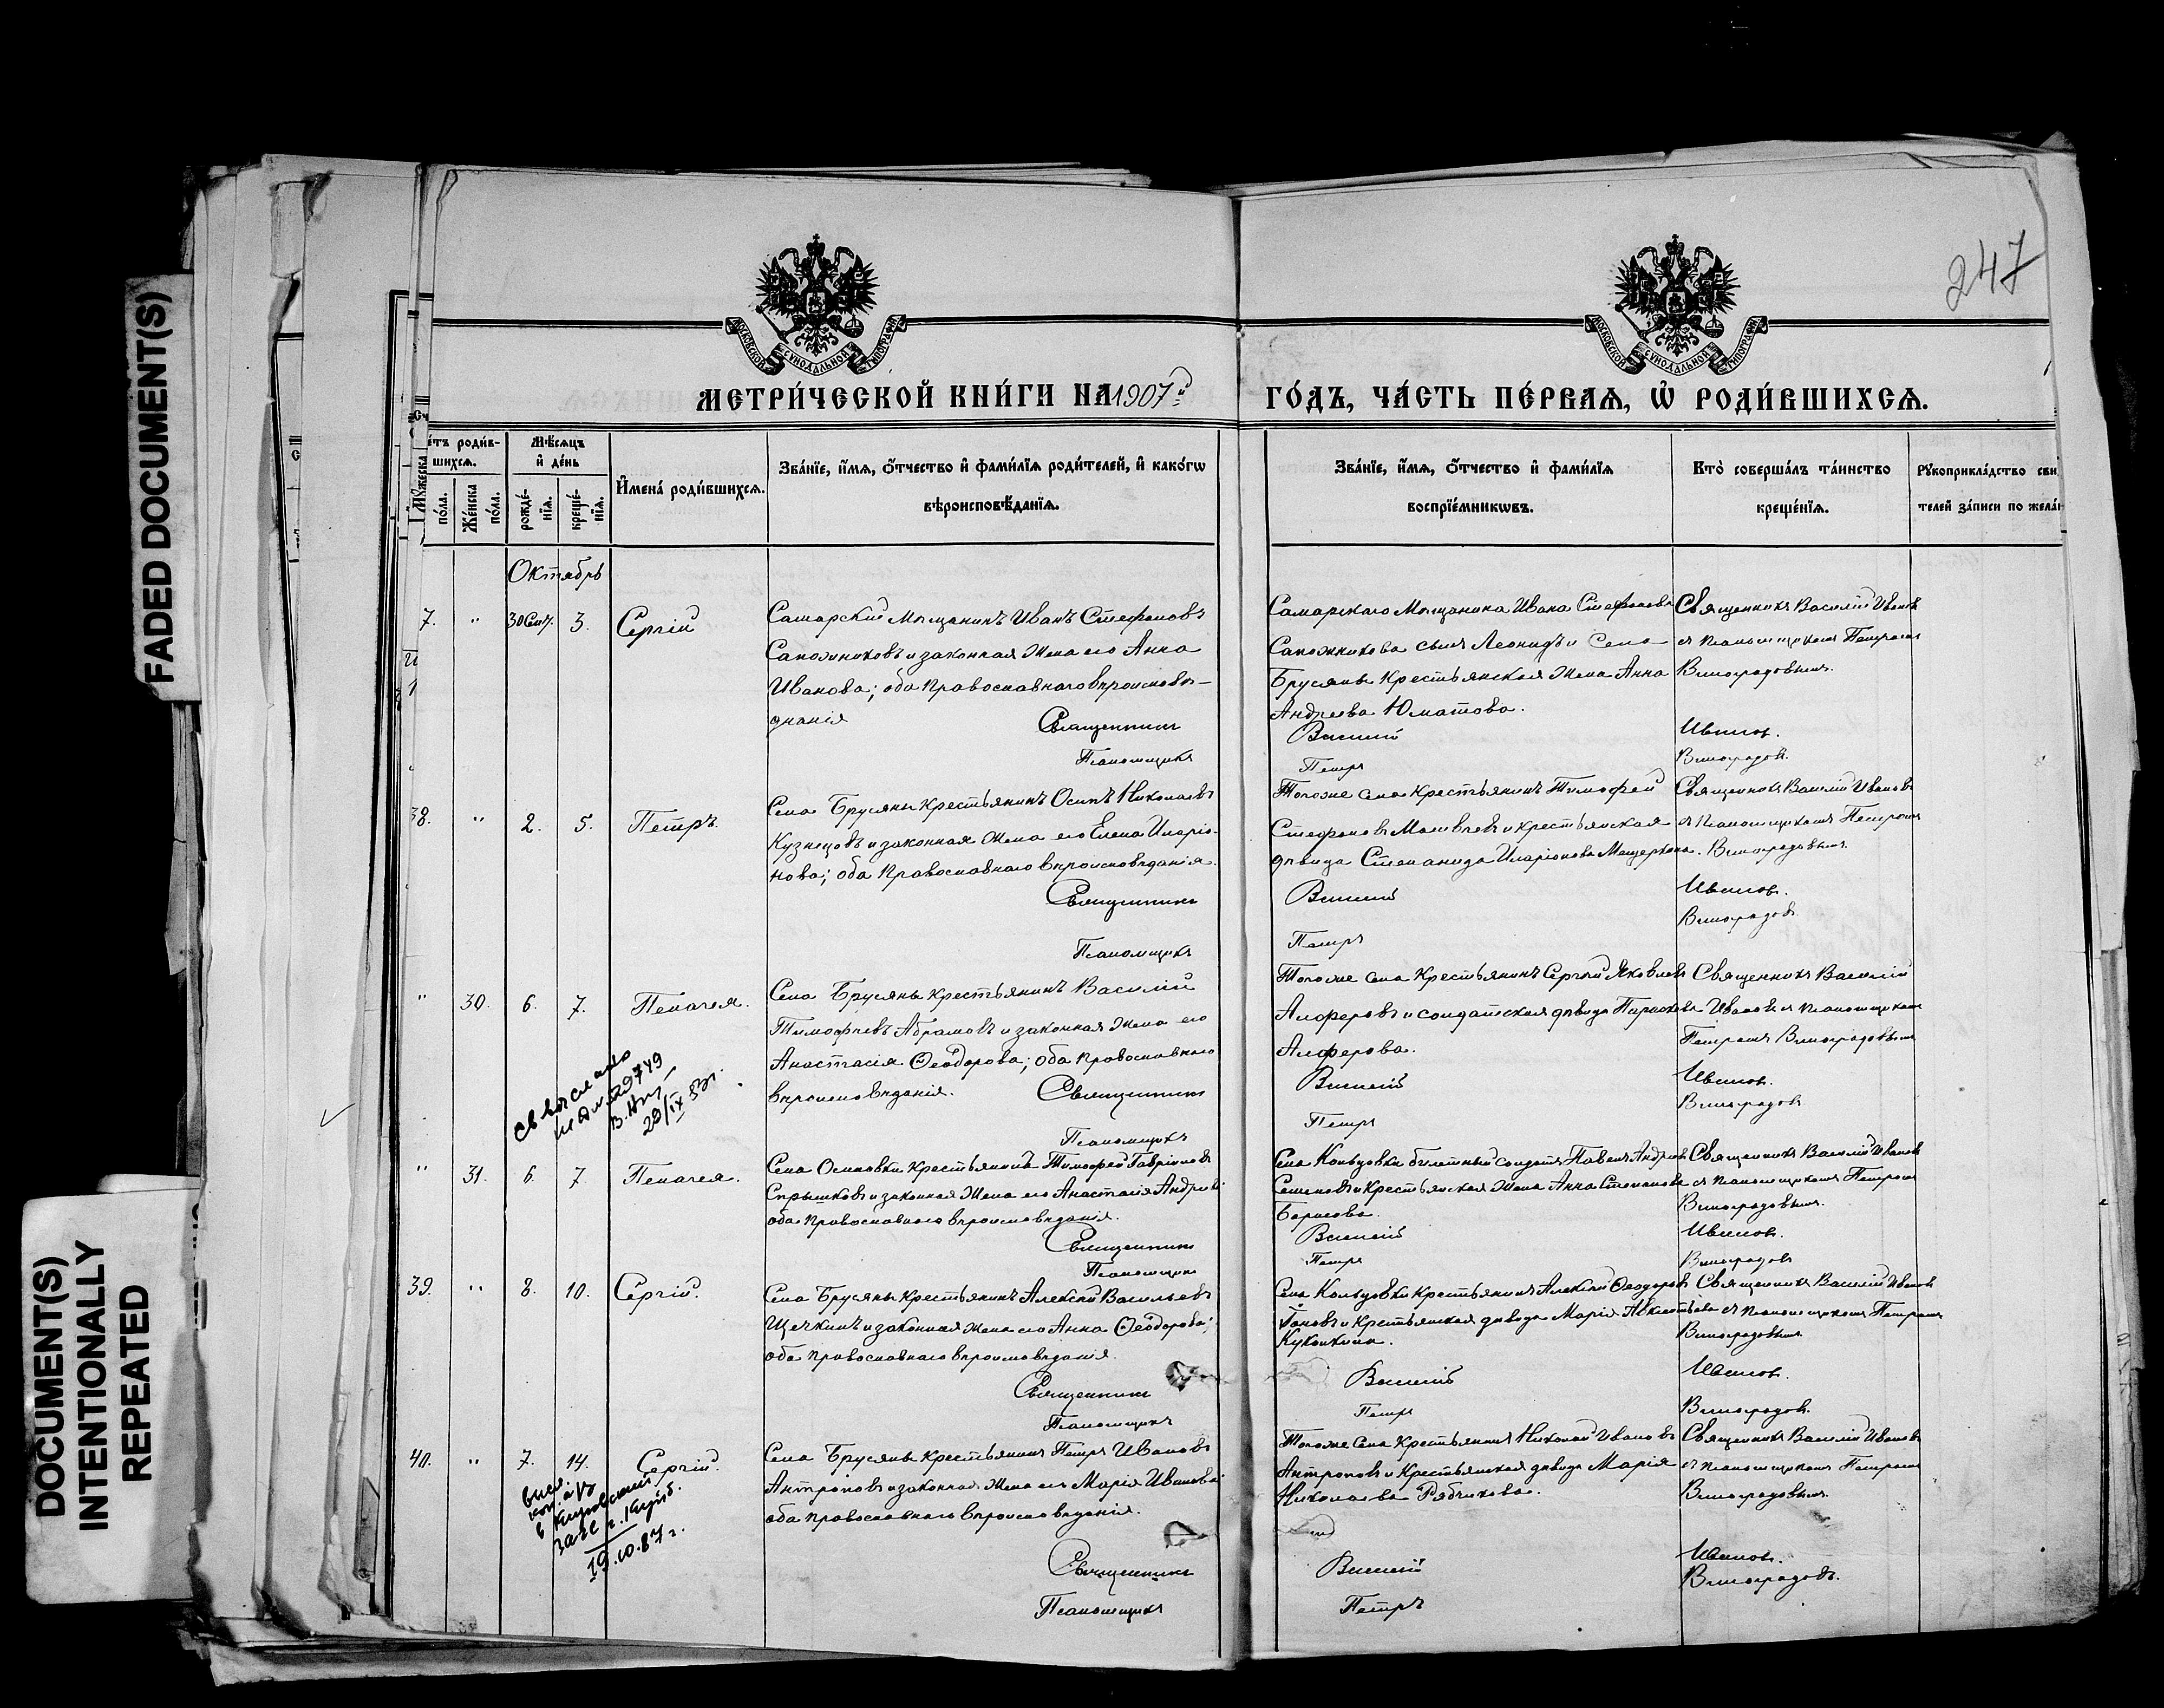 FADED DOCUMENT(S)
DOCUMENT(S)
INTENTIONALLY
REPEATED
247
МОСКОВСКОЙ СѴНОДАЛЬНОЙ ТИПОГРАФІИ
МОСКОВСКОЙ СѴНОДАЛЬНОЙ ТИПОГРАФІИ
МЕТРИ́ЧЕСКОЙ КНИ́ГИ НА 1907й ГО́ДЪ, ЧА́СТЬ ПЕ́РВАѦ, Ѡ РОДИ́ВШИХСѦ.
Сч
е́тъ роди́в-
шихсѧ.
Мꙋ́жеска
по́ла.
Же́нска
по́ла.
Мѣ́сѧцъ
и҆ де́нь
рожде́-
нїѧ.
креще́-
нїѧ.
И҆мена̀ роди́вшихсѧ.
Зва́нїе, и҆́мѧ, о҆́тчество и҆ фами́лїѧ роди́телей, и҆ како́гѡ
вѣроисповѣ́данїѧ.
Зва́нїе, и҆́мѧ, о҆́тчество и҆ фами́лїѧ
воспрїе́мникѡвъ.
Кто̀ соверша́лъ та́инство
креще́нїѧ.
Рꙋкоприкла́дство сви
телей за́писи по жела́н
Октябрь
7. " 30 Сент. 3. Сергій
Самарскій Мѣщанинъ Иванъ Стефановъ
Сапожниковъ и законная жена его Анна
Иванова; оба православнаго вѣроисповѣ-
данія
Священникъ
Псаломщикъ
Самарскаго Мѣщанина Ивана Стефанова
Сапожникова сынъ Леонидъ и Села
Брусяны Крестьянская жена Анна
Андреева Юматова.
Василій
Петръ
Священникъ Василій Ивановъ
съ псаломщикомъ Петромъ
Виноградовымъ.
Ивановъ.
Виноградовъ.
38. " 2. 5. Петръ.
Села Брусяны крестьянинъ Осипъ Николаевъ
Кузнецовъ и законная жена его Елена Иларіо-
нова; оба православнаго вѣроисповѣданія.
Священникъ
Псаломщикъ
Тогоже села крестьянинъ Тимофей
Стефановъ Матвѣевъ и крестьянская
дѣвица Степанида Иларіонова Мещерякова.
Василій
Петръ
Священникъ Василій Ивановъ
съ псаломщикомъ Петромъ
Виноградовымъ.
Ивановъ.
Виноградовъ
" 30. 6. 7. Пелагея.
Села Брусяны крестьянинъ Василій
Тимофѣевъ Абрамовъ и законная жена его
Анастасія Ѳеодорова; оба православнаго
вѣроисповѣданія.
Священникъ
Псаломщикъ
Тогоже села крестьянинъ Сергѣй Яковлевъ
Алферовъ и солдатская дѣвица Параскева
Алферова.
Василій
Петръ
Священникъ Василій
Ивановъ съ псаломщикомъ
Петромъ Виноградовымъ
Ивановъ.
Виноградовъ
св выслано
29749
" 31. 6. 7. Пелагея.
Села Осиновки крестьянинъ Тимофей Гавріиловъ
Спрышковъ и законная жена его Анастасія Андреева
оба православнаго вѣроисповѣданія.
Священникъ
Псаломщикъ
Села Кольцовки билетный солдатъ Павелъ Андреевъ
Семеновъ и крестьянская жена Анна Степанова
Борисова.
Василій
Петръ
Священникъ Василій Ивановъ
съ псаломщикомъ Петромъ
Виноградовымъ.
Ивановъ.
Виноградовъ
39. " 8. 10. Сергій.
Села Брусяны крестьянинъ Алексѣй Васильевъ
Щечкинъ и законная жена его Анна Ѳеодорова;
оба православнаго вѣроисповѣданія.
Священникъ
Псаломщикъ
Села Кольцовки крестьянинъ Алексѣй Ѳеодоровъ
и крестьянская дѣвица Марія
Василій
Петръ
Священникъ Василій Ивановъ
съ псаломщикомъ Петромъ
Виноградовымъ
Ивановъ.
Виноградовъ.
40. " 7. 14. Сергій.
Села Брусяны крестьянинъ Петръ Ивановъ
Антроповъ и законная жена его Марія Иванова
оба православнаго вѣроисповѣданія.
Священникъ
Псаломщикъ
Тогоже села крестьянинъ Николай Ивановъ
Антроповъ и крестьянская дѣвица Марія
Николаева Рябчикова.
Василій
Петръ
Священникъ Василій Ивановъ
съ псаломщикомъ Петромъ
Виноградовымъ.
Ивановъ.
Виноградовъ.
ЗАГС г. Куйб.
19.10.87 г.